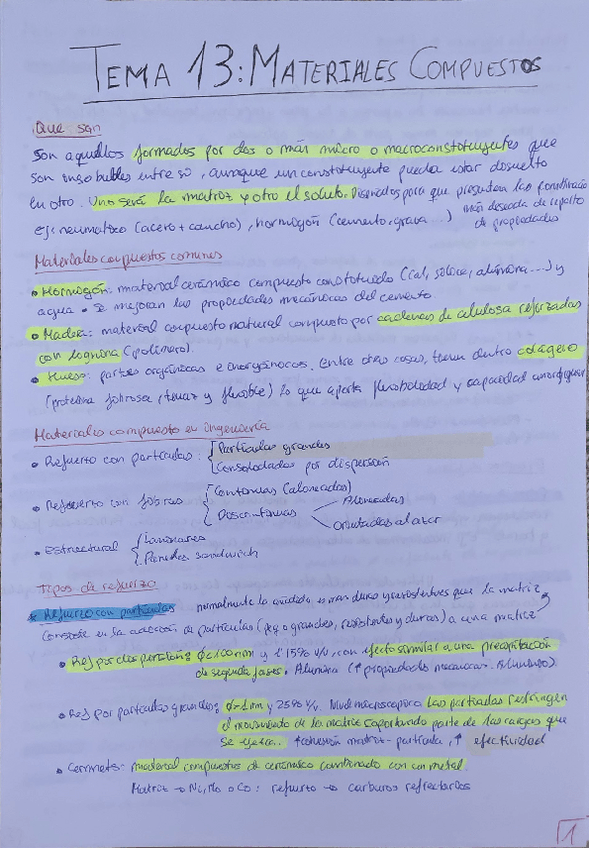 TEMA 13: MATERIALES COMPUESTOS
Que son
Son aquellos formados por dos o más micro o macroconstituyentes que
son insolubles entre sí, aunque un constituyente pueda estar disuelto
en otro. Uno será la matriz y otro el soluto. Diseñados para que presenten la combinación
más deseada de reparto
ej: neumático (acero + caucho), hormigón (cemento, grava ...)
de propiedades
Materiales compuestos comunes
• Hormigón: material cerámico compuesto constituido (cal, sílice, alúmina...) y
agua • Se mejoran las propiedades mecánicas del cemento.
• Madera: material compuesto natural compuesto por cadenas de celulosa reforzadas
con lignina (polímero).
• Hueso: partes orgánicas e inorgánicas. Entre otras cosas, tienen dentro colágeno
(proteína fibrosa, tenaz y flexible) lo que aporta flexibilidad y capacidad
Materiales compuesto en ingeniería
• Refuerzo con partículas: Partículas grandes
Consolidadas por dispersión
• Refuerzo con fibras Continuas (alineadas)
Discontinuas Alineadas
Orientadas al azar
• Estructural Laminares
Paneles sandwich
Tipos de refuerzo
* Refuerzo con partículas normalmente lo añadido es más duro y resistente que la matriz
Consiste en la adición de partículas (peq o grandes, resistentes y duras) a una matriz
• Ref por dispersión: φ<100nm y <15% v/v, con efecto similar a una precipitación
de segunda fases. Alúmina (↑ propiedades mecánicas. Aluminio).
• Ref por partículas grandes: y 25% v/v. Nivel macroscópico las partículas restringen
el movimiento de la matriz soportando parte de las cargas que
se ejerce. ↑ cohesión matriz-partícula, ↑ efectividad
• Cermets: material compuestos de cerámico combinado con un metal.
Matriz → Ni, Mo o Co: refuerzo → carburos refractarios
1